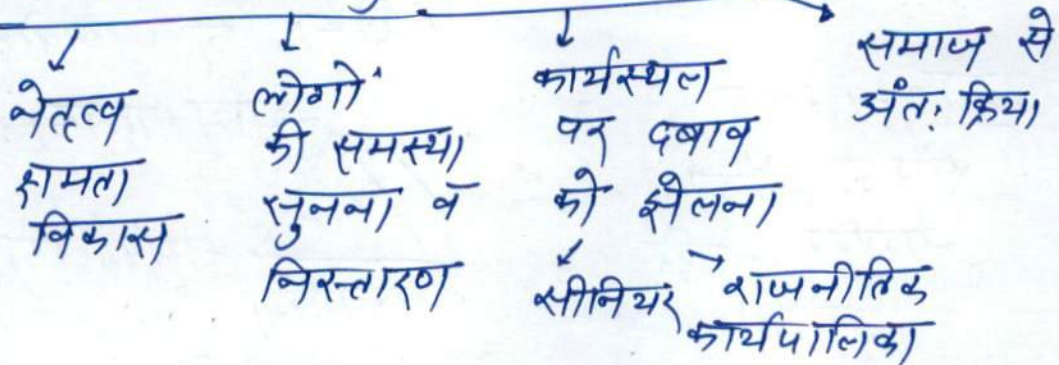 नेतृत्व
क्षमता
विकास
लोगों
की समस्या
सुनना व
निस्तारण
कार्यस्थल
पर दबाव
को झेलना
सीनियर
राजनीतिक
कार्यपालिका
समाज से
अंतः क्रिया